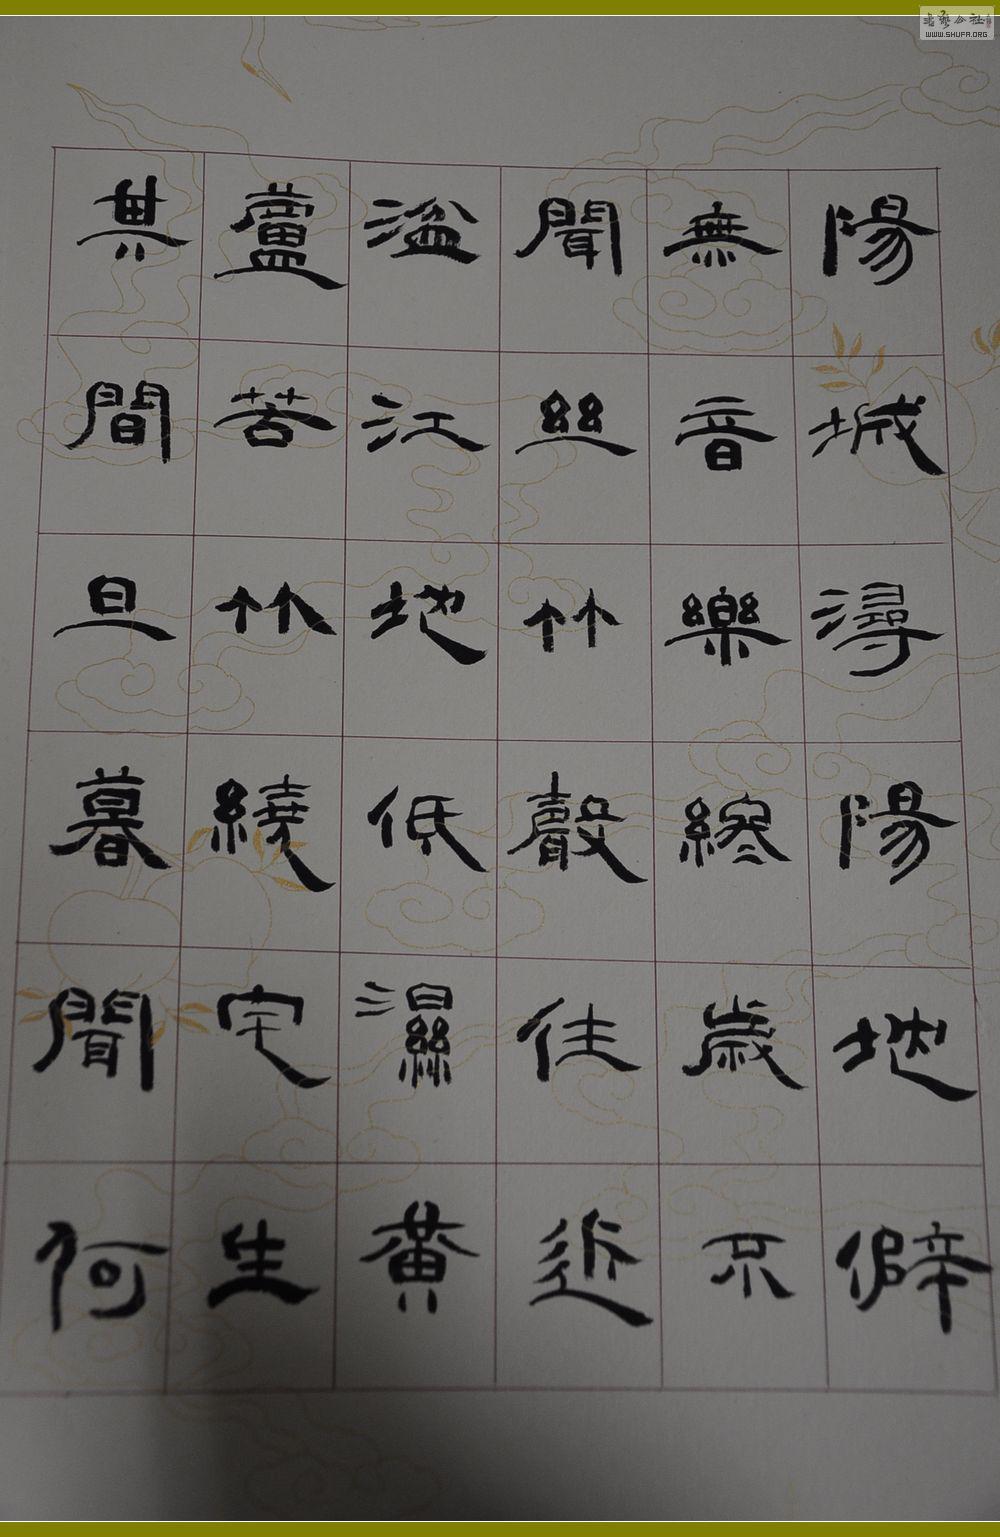 陽城潯陽地僻
無音樂終歲不
聞絲竹聲住近
湓江地低濕黃
蘆苦竹繞宅生
其間旦暮聞何
书艺公社
WWW.SHUFA.ORG